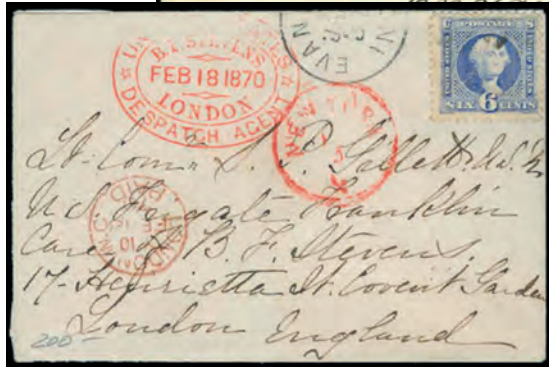 UNITED STATES
B.F. STEVENS
FEB 18 1870
LONDON
DESPATCH AGENT
EVAN
U.S. POSTAGE
UNITED STATES
UNITED STATES
SIX 6 CENTS
NEW YORK
Lt. Comr. S. P. Gillett U.S.N.
U.S. Frigate Franklin
Care of B. F. Stevens.
17- Henrietta St. Covent Garden
London England
LONDON
PAID
200-